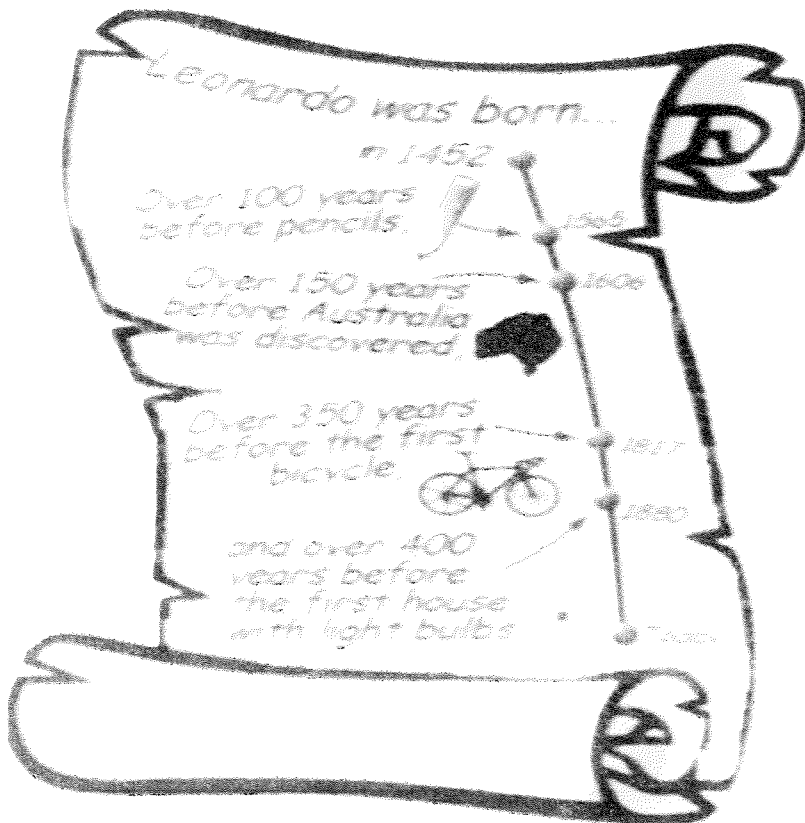 Leonardo was born...
in 1452
Over 100 years
before pencils.
1565
Over 150 years
before Australia
was discovered.
1606
Over 350 years
before the first
bicycle.
1817
1880
and over 400
years before
the first house
with light bulbs